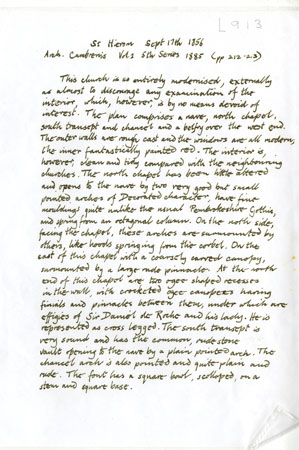 [913
St Hieron Sept 17th 1856
Arch. Cambrensis Vol 2 5th Series 1885 (pp 212-23)
This church is so entirely modernised, externally
as almost to discourage any examination of the
interior, which, however, is by no means devoid of
interest. The plan comprises a nave, north chapel,
south transept and chancel and a belfry over the west end.
The outer walls are rough cast and the windows are all modern,
the inner fantastically painted red. The interior is,
however, clean and tidy compared with the neighbouring
churches. The north chapel has been little altered
and opens to the nave by two very good but small
pointed arches of Decorated character, have fine
mouldings quite unlike the usual Pembrokeshire Gothic,
and spring from an octagonal column. On the north side,
facing the chapel, these arches are surmounted by
others, like hoods springing from the corbel. On the
east of this chapel with a coarsely carved canopy,
surmounted by a large rude pinnacle. At the north
end of this chapel are two ogee shaped recesses
in the wall, with crocketed ogee canopies having
finials and pinnacles between them, under which are
effigies of Sir Daniel de Roche and his lady. He is
represented as cross legged. The south transept is
very sound and has the common, rude stone
vault opening to the nave by a plain pointed arch. The
chancel arch is also pointed and quite plain and
rude. The font has a square bowl, scalloped, on a
stem and square base.